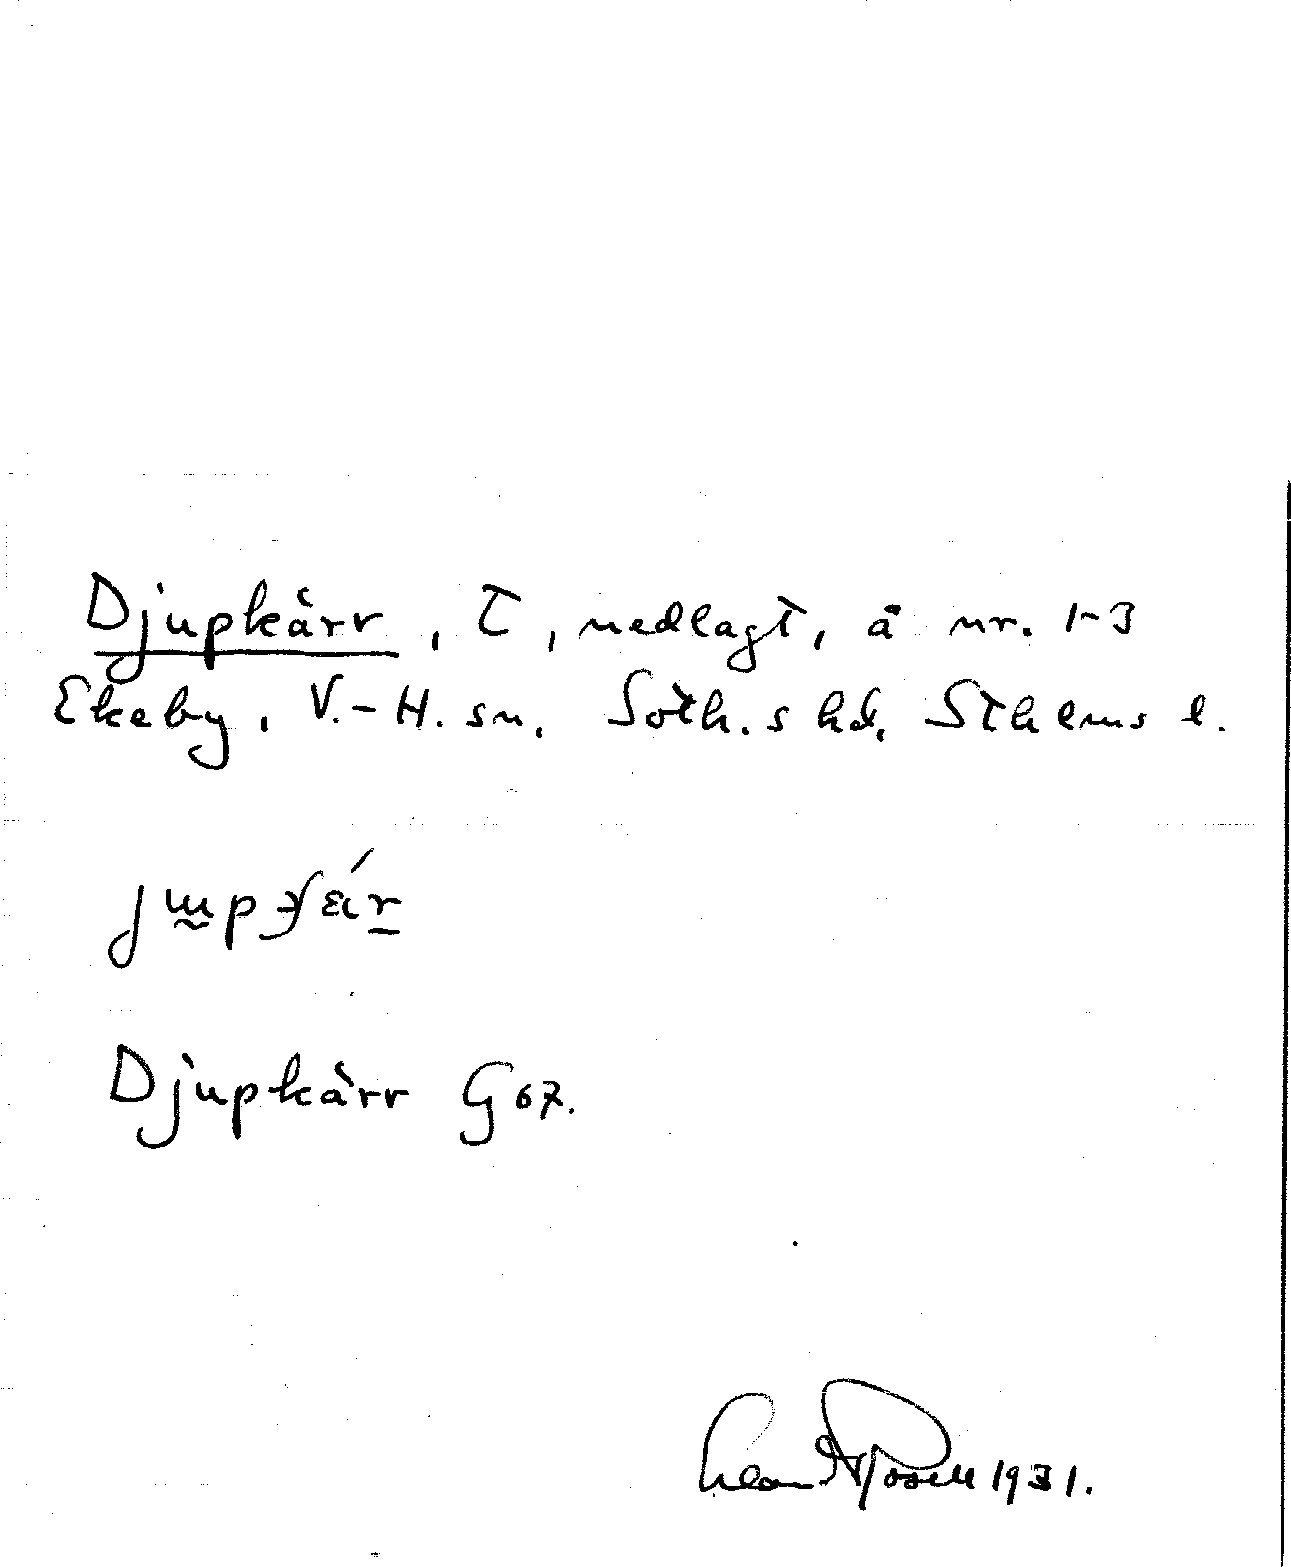 Djupkärr, T, nedlagt, å nr. 1-3
Ekeby, V.-H. sn. Soth.s hd, Sthlms l.
Djupkärr G 67.
1931.